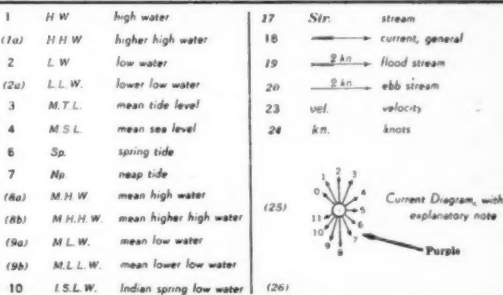 1 H W high water
(1a) H H W higher high water
2 L W low water
(2a) L. L. W. lower low water
3 M. T. L. mean tide level
4 M. S. L. mean sea level
6 Sp. spring tide
7 Np neap tide
(8a) M. H. W mean high water
(8b) M. H. H. W. mean higher high water
(9a) M. L. W. mean low water
(9b) M. L. L. W. mean lower low water
10 I. S. L. W. Indian spring low water
17 Str. stream
18 current, general
19 2 kn flood stream
20 2 kn ebb stream
23 vel. velocity
24 kn. knots
(25) 0 1 2 3 4 5 6 7 8 9 10 11 Current Diagram, with
explanatory note
Purple
(26)